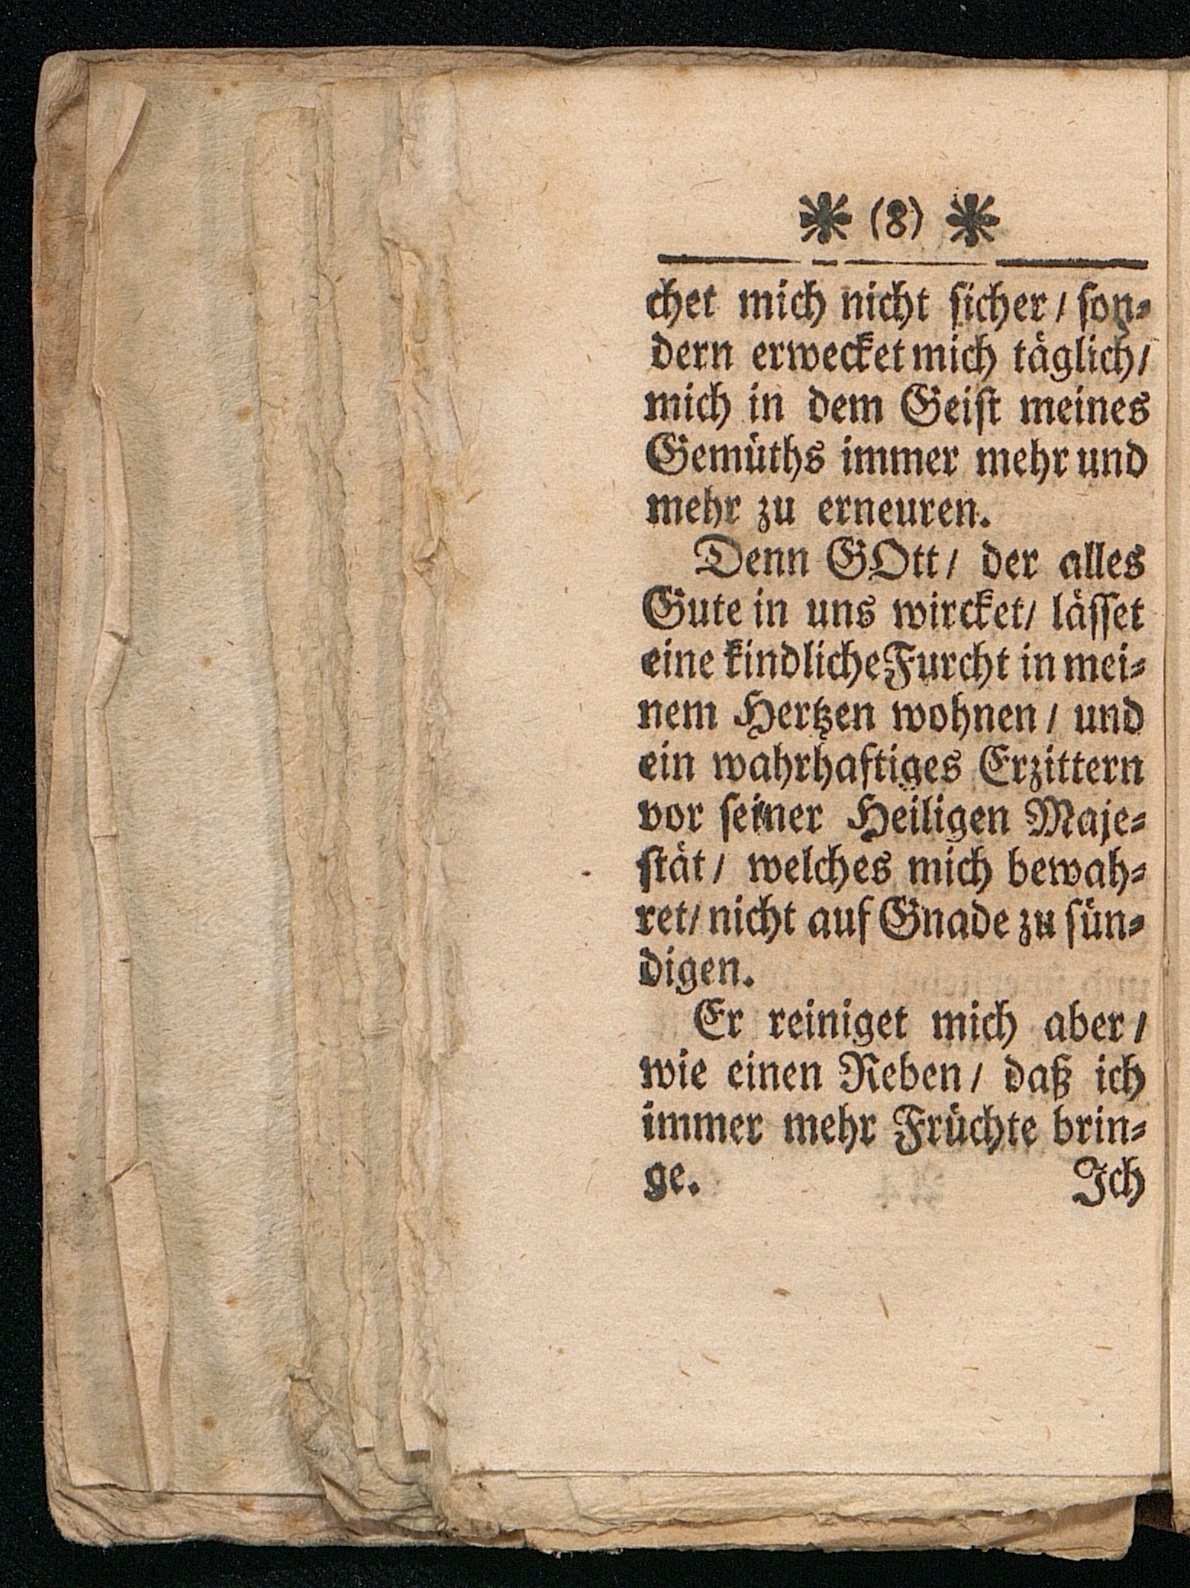 * (8) *
chet mich nicht sicher / son-
dern erwecket mich täglich /
mich in dem Geist meines
Gemüths immer mehr und
mehr zu erneuren.
Denn GOtt / der alles
Gute in uns wircket / lässet
eine kindliche Furcht in mei-
nem Hertzen wohnen / und
ein wahrhaftiges Erzittern
vor seiner Heiligen Maje-
stät / welches mich bewah-
ret / nicht auf Gnade zu sün-
digen.
Er reiniget mich aber /
wie einen Reben / daß ich
immer mehr Früchte brin-
ge. Ich